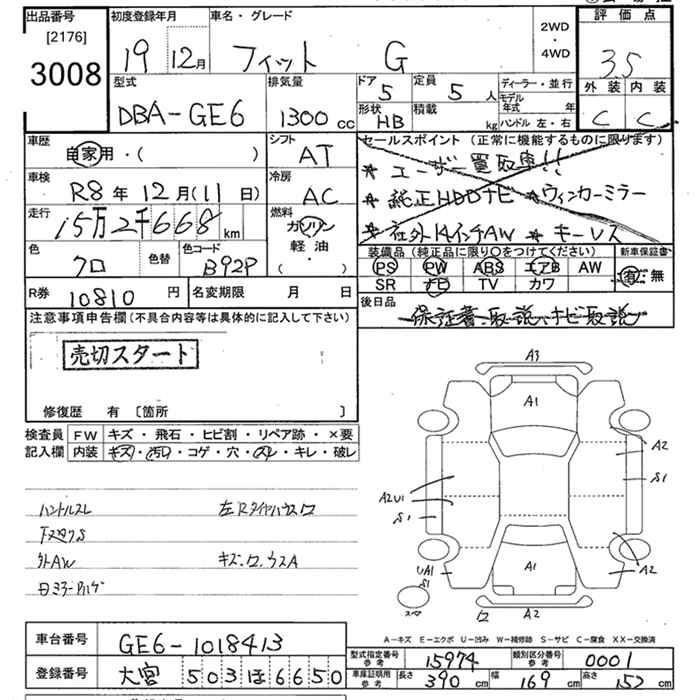 出品番号
[2176]
3008
初度登録年月
19 12月
車名・グレード
フィット G
2WD
・
4WD
評価点
3.5
外装 内装
C C
型式
DBA-GE6
排気量
1300 cc
ドア
5
定員
5 人
形状
HB
積載
kg
ディーラー・並行
モデル年式 年
ハンドル 左・右
車歴
自家用・( )
シフト
AT
車検
R8年 12月(11日)
冷房
AC
走行
15万2千668km
燃料
ガソリン
軽油
・( )
色
クロ
色替
色コード
B92P
セールスポイント (正常に機能するものに限ります)
★ ユーザー買取車!!
★ 純正HDDナビ ★ウィンカーミラー
★ 社外14インチAW ★ キーレス
装備品 (純正品に限り○をつけてください)
PS PW ABS エアB AW
SR ナビ TV カワ
新車保証書
有・無
R券 10810 円
名変期限 月 日
後日品
保証書、取説、ナビ取説
注意事項申告欄 (不具合内容等は具体的に記入して下さい)
売切スタート
修復歴 有 〔箇所 〕
検査員
記入欄
FW キズ・飛石・ヒビ割・リペア跡・×要
内装 キズ・汚れ・コゲ・穴・スレ・キレ・破レ
ハンドルスレ
下スリクS
外AW
キズ.ワ.ウスA
A3
A1
A2
S1
A2U1
S1
A1
UA1
S1
A2
スマ
ワ
A2
A-キズ E-エクボ U-凹み W-補修跡 S-サビ C-腐食 XX-交換済
車台番号 GE6-1018413
登録番号 大宮 503 ほ 6650
型式指定番号
参考
15974
類別区分番号
参考
0001
車庫証明用
参考
長さ 390 cm 幅 169 cm 高さ 152 cm